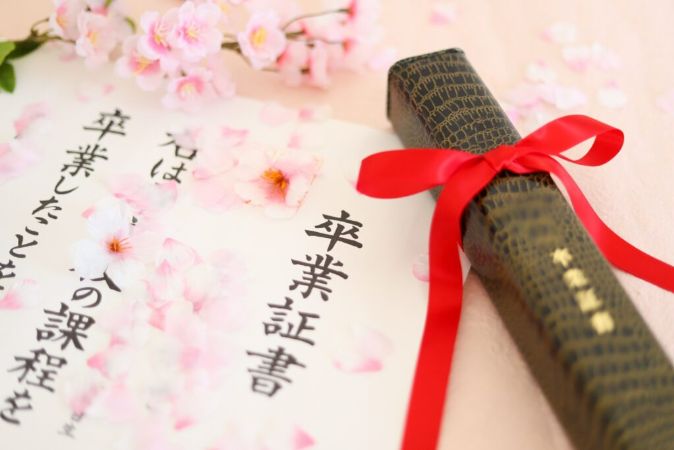 卒業証書
君は
の課程を
卒業したことを